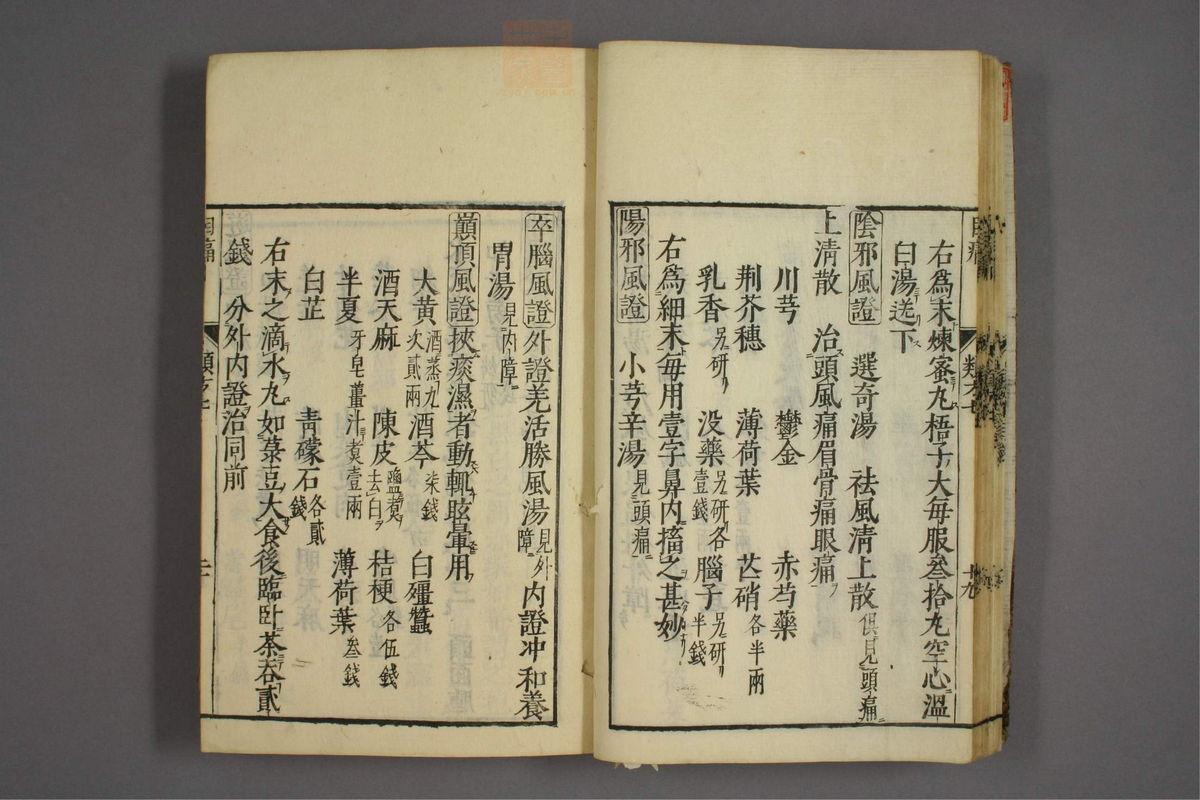 右爲末煉蜜丸梧子大每服叄拾丸空心溫
白湯送下
陰邪風證　選奇湯　祛風清上散俱見頭痛
上清散　治頭風痛眉骨痛眼痛
川芎　鬱金　赤芍藥
荆芥穗　薄荷葉　芒硝各半兩
乳香另研　没藥另研各壹錢　腦子另研半錢
右爲細末每用壹字鼻內搐之甚妙
陽邪風證　小芎辛湯見頭痛
十九
卒腦風證外證羌活勝風湯見外障內證冲和養
胃湯見內障
巔頂風證挾痰濕者動輒眩暈用
大黃酒蒸九次貳兩　酒芩柒錢　白殭蠶
酒天麻　陳皮鹽煮去白　桔梗各伍錢
半夏牙皂薑汁煮壹兩　薄荷葉叄錢
白芷　靑礞石各貳錢
右末之滴水丸如菉豆大食後臨臥茶吞貳
錢　分外內證治同前